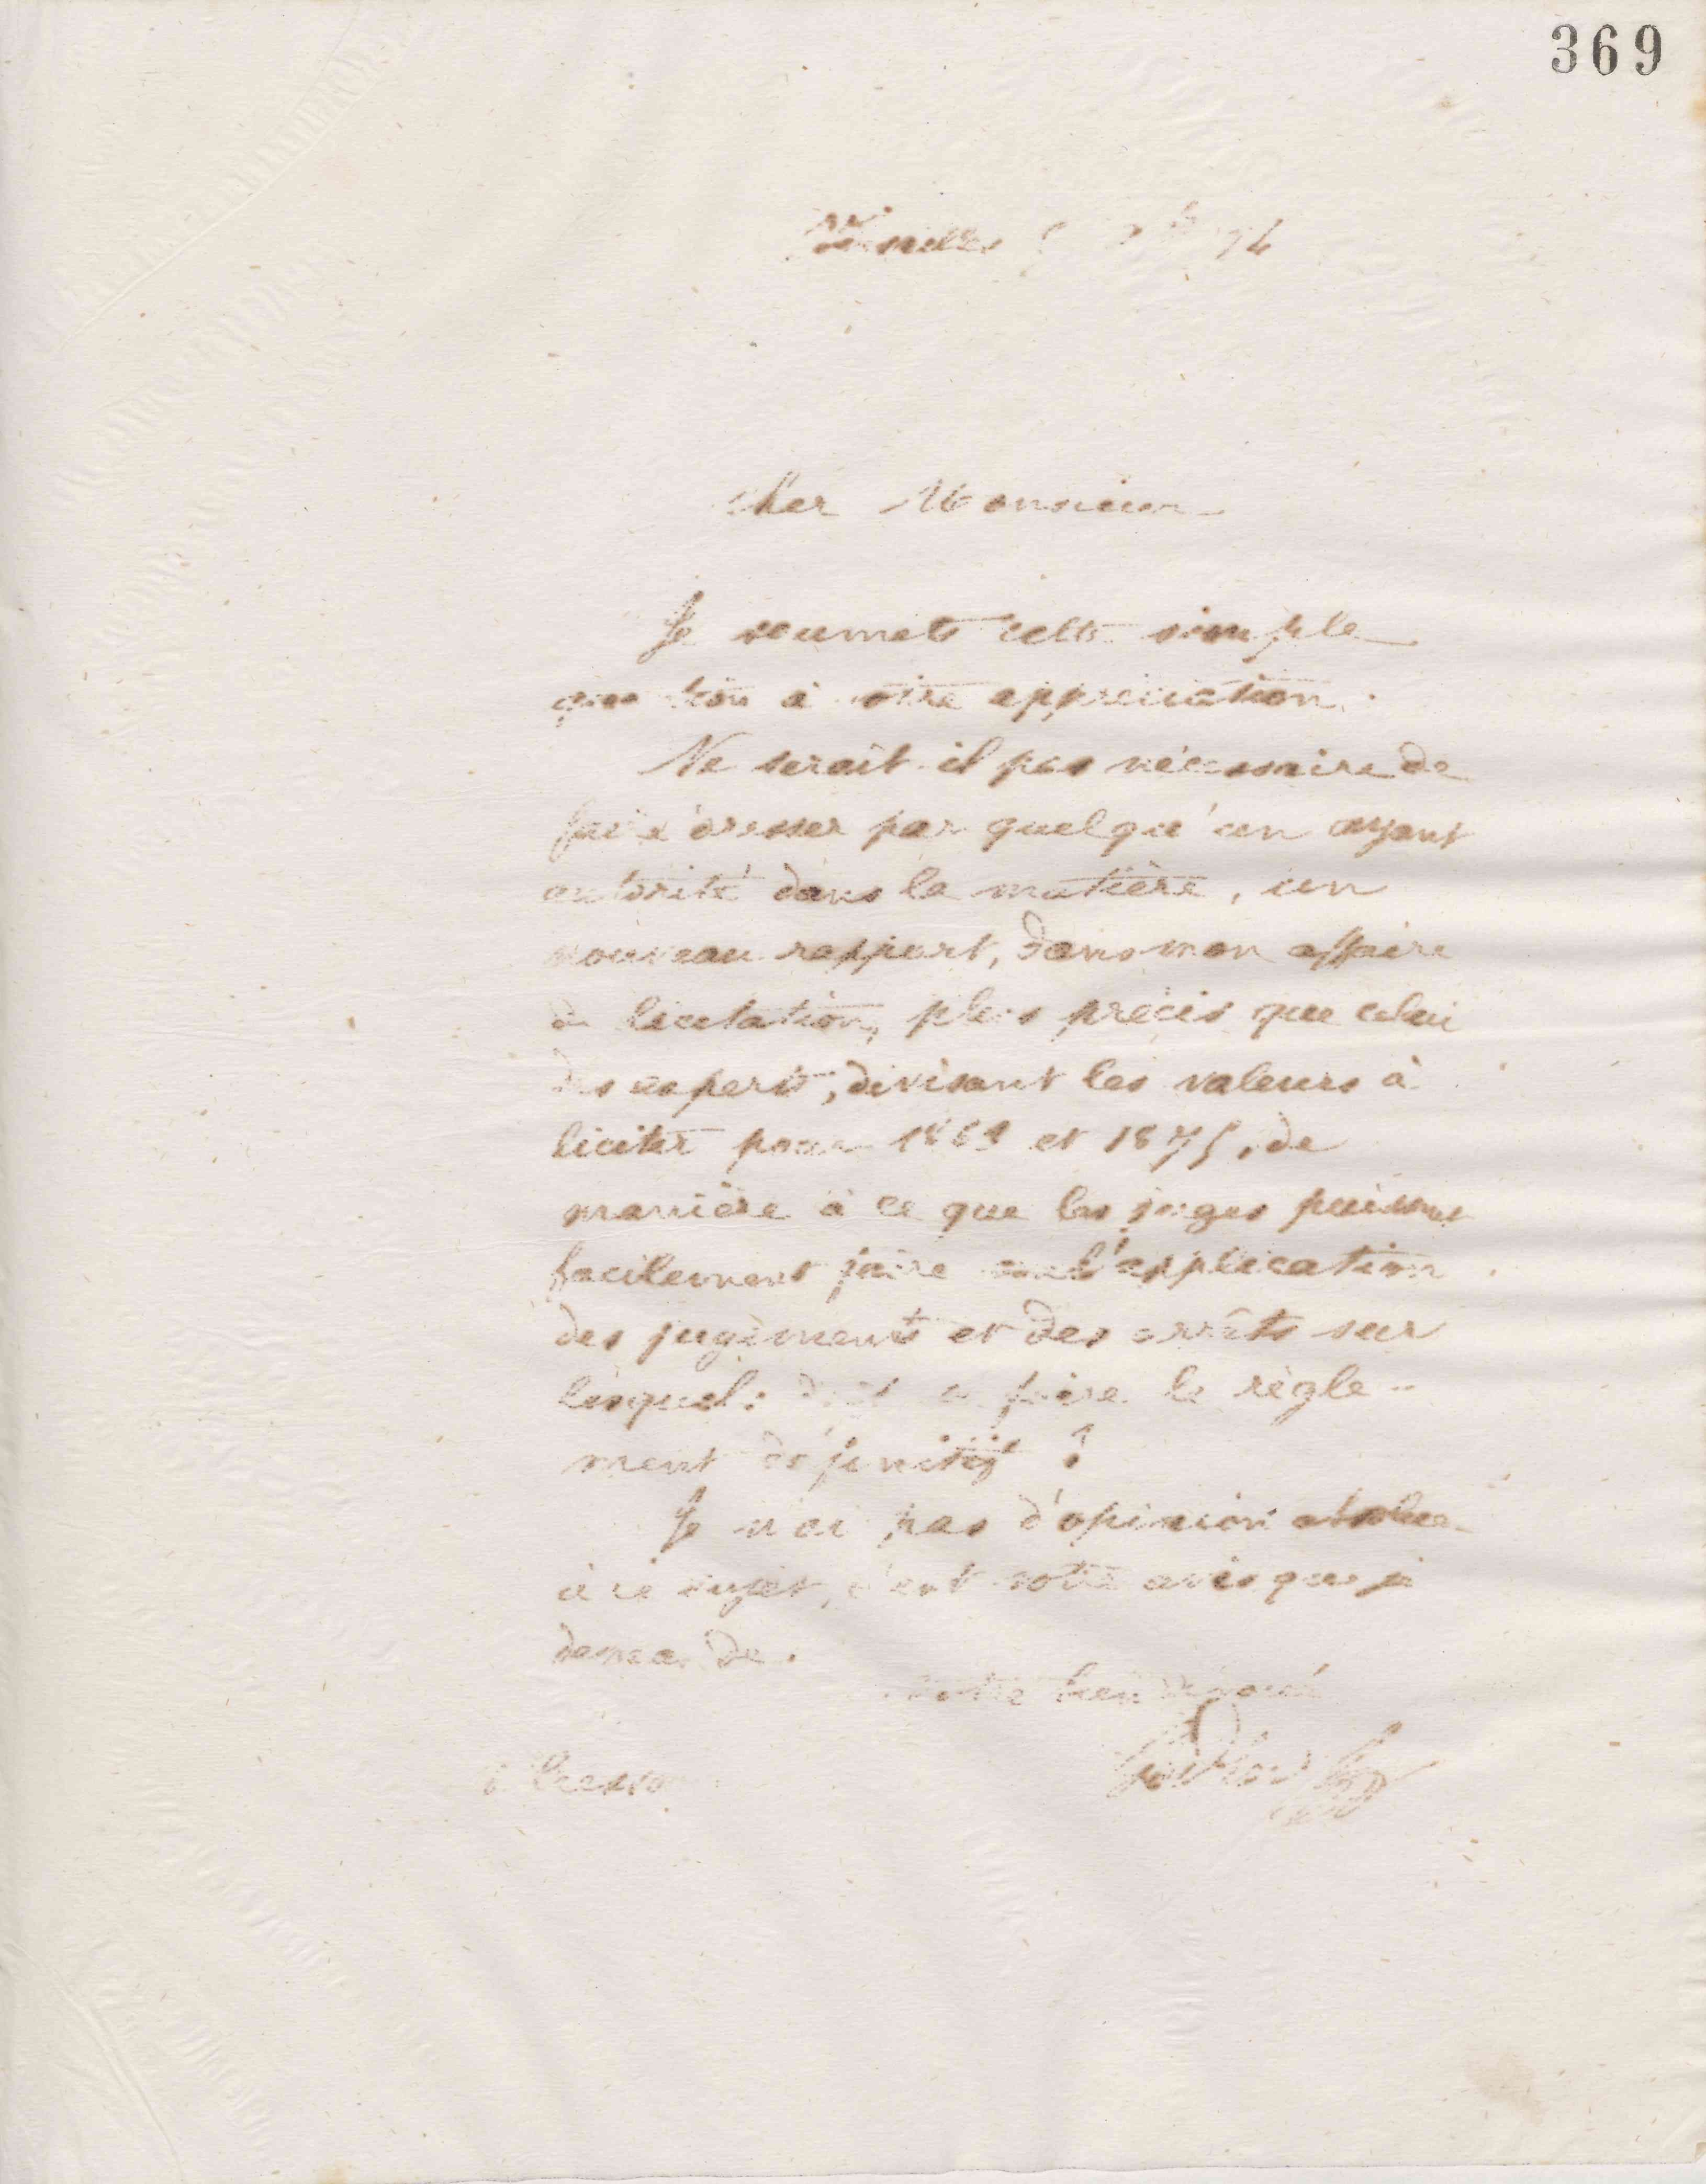 369
Versailles
Cher Monsieur
Je soumets cette simple
question à votre appréciation.
Ne serait-il pas nécessaire de
faire dresser par quelqu'un ayant
autorité dans la matière, un
nouveau rapport, dans mon affaire
de licitation, plus précis que celui
des experts, divisant les valeurs à
liciter pour 1869 et 1875, de
manière à ce que les juges puissent
facilement faire l'application
des jugements et des arrêts sur
lesquels doit se faire le règle-
ment définitif ?
Je n'ai pas d'opinion absolue
à ce sujet, c'est votre avis que je
demande.
Votre bien dévoué
Godin